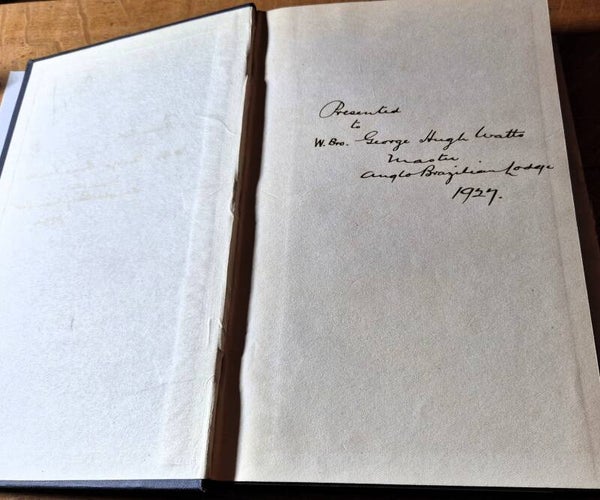 Presented
to
W. Bro. George Hugh Watts
Master
Anglo Brazilian Lodge
1927.